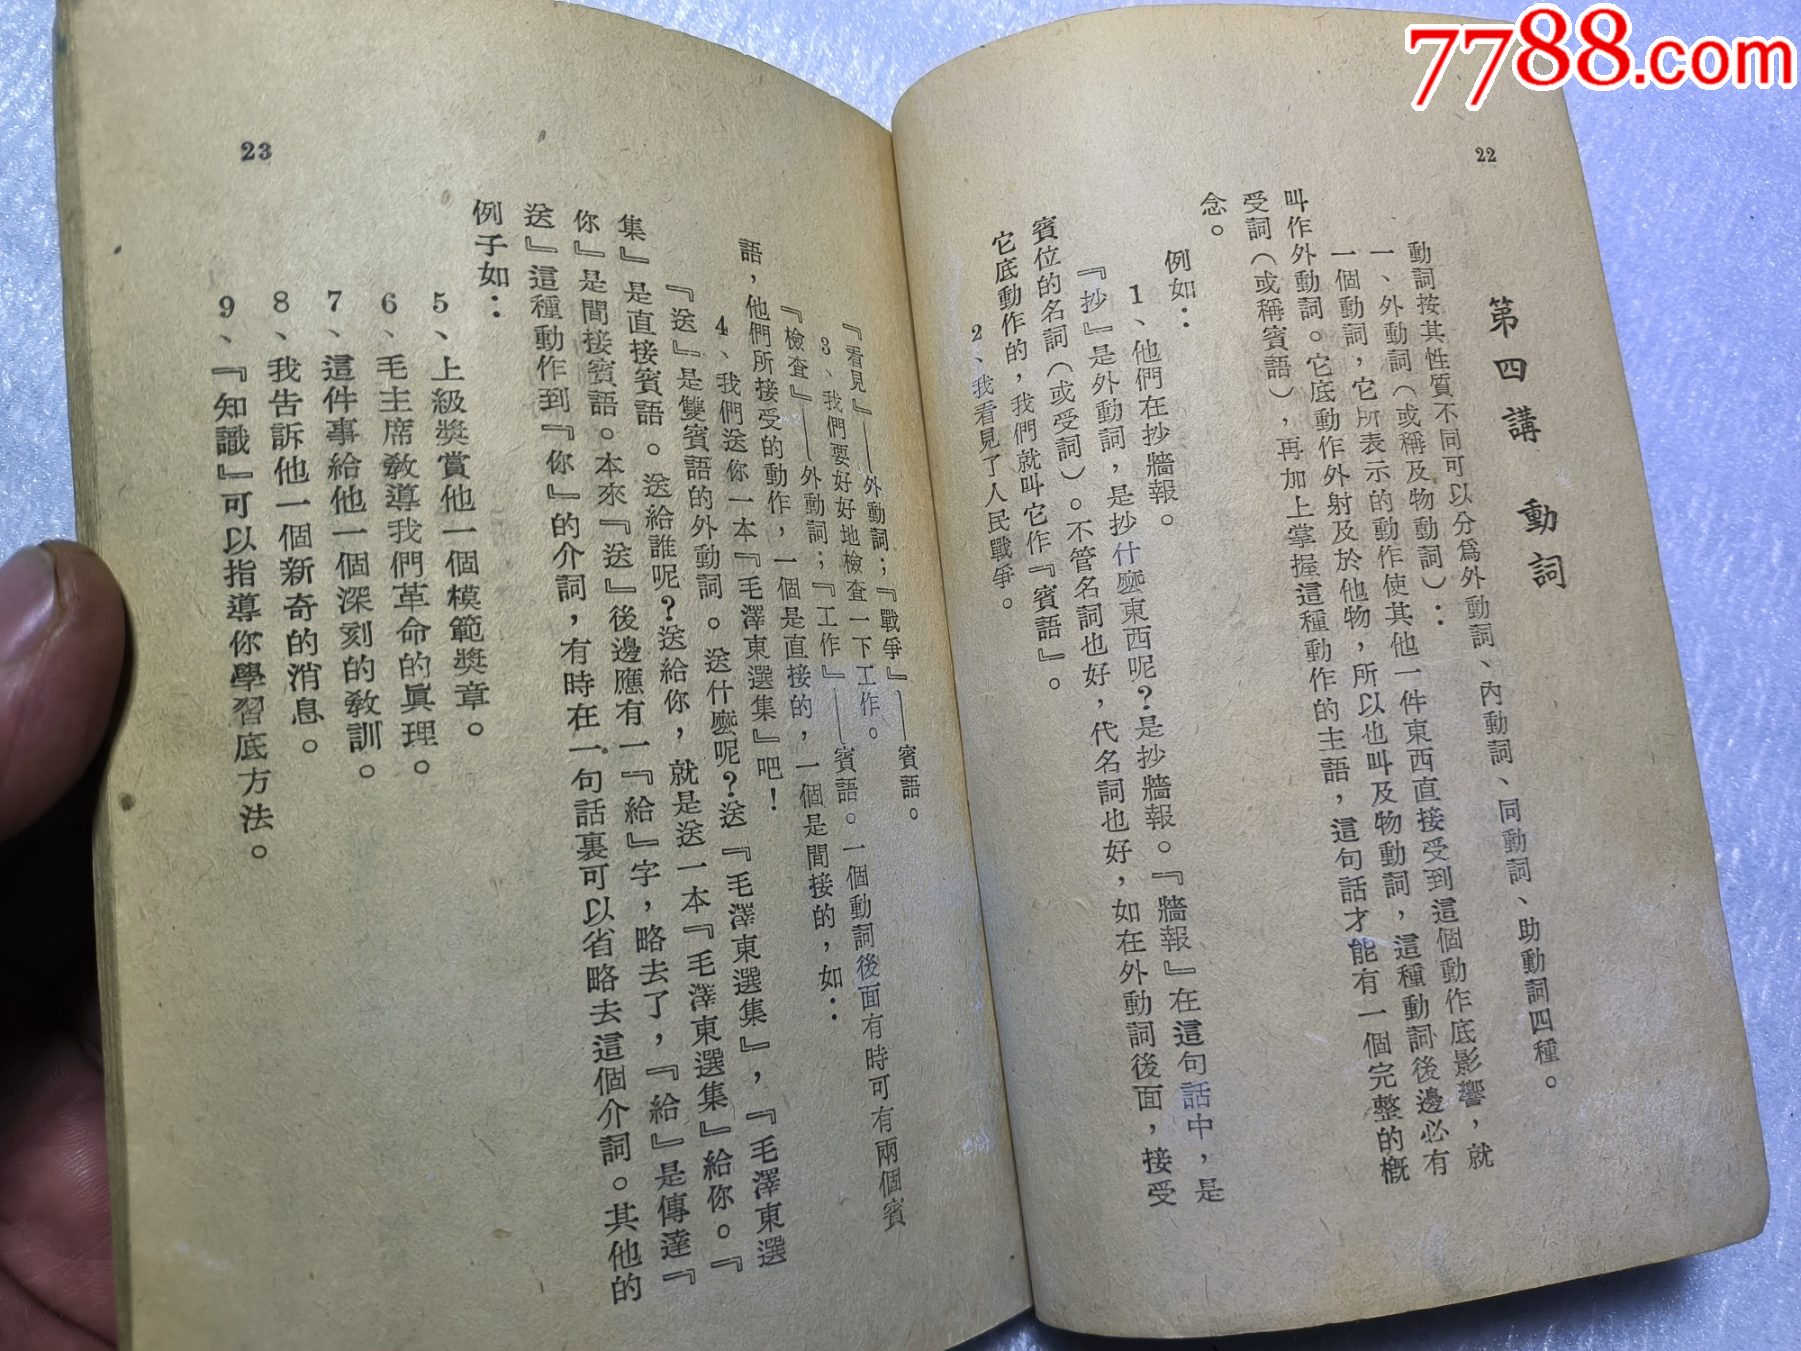 7788.com
22
第四講 動詞
動詞按其性質不同可以分爲外動詞、內動詞、同動詞、助動詞四種。
一、外動詞（或稱及物動詞）：
一個動詞，它所表示的動作使其他一件東西直接受到這個動作底影響，就
叫作外動詞。它底動作外射及於他物，所以也叫及物動詞，這種動詞後邊必有
受詞（或稱賓語），再加上掌握這種動作的主語，這句話才能有一個完整的概
念。
例如：
1、他們在抄牆報。
『抄』是外動詞，是抄什麼東西呢？是抄牆報。『牆報』在這句話中，是
賓位的名詞（或受詞）。不管名詞也好，代名詞也好，如在外動詞後面，接受
它底動作的，我們就叫它作『賓語』。
2、我看見了人民戰爭。
23
『看見』——外動詞；『戰爭』——賓語。
3、我們要好好地檢查一下工作。
『檢查』——外動詞；『工作』——賓語。一個動詞後面有時可有兩個賓
語，他們所接受的動作，一個是直接的，一個是間接的，如：
4、我們送你一本『毛澤東選集』吧！
『送』是雙賓語的外動詞。送什麼呢？送『毛澤東選集』，『毛澤東選
集』是直接賓語。送給誰呢？送給你，就是送一本『毛澤東選集』給你。『
你』是間接賓語。本來『送』後邊應有一『給』字，略去了，『給』是傳達『
送』這種動作到『你』的介詞，有時在一句話裏可以省略去這個介詞。其他的
例子如：
5、上級獎賞他一個模範獎章。
6、毛主席教導我們革命的眞理。
7、這件事給他一個深刻的教訓。
8、我告訴他一個新奇的消息。
9、『知識』可以指導你學習底方法。